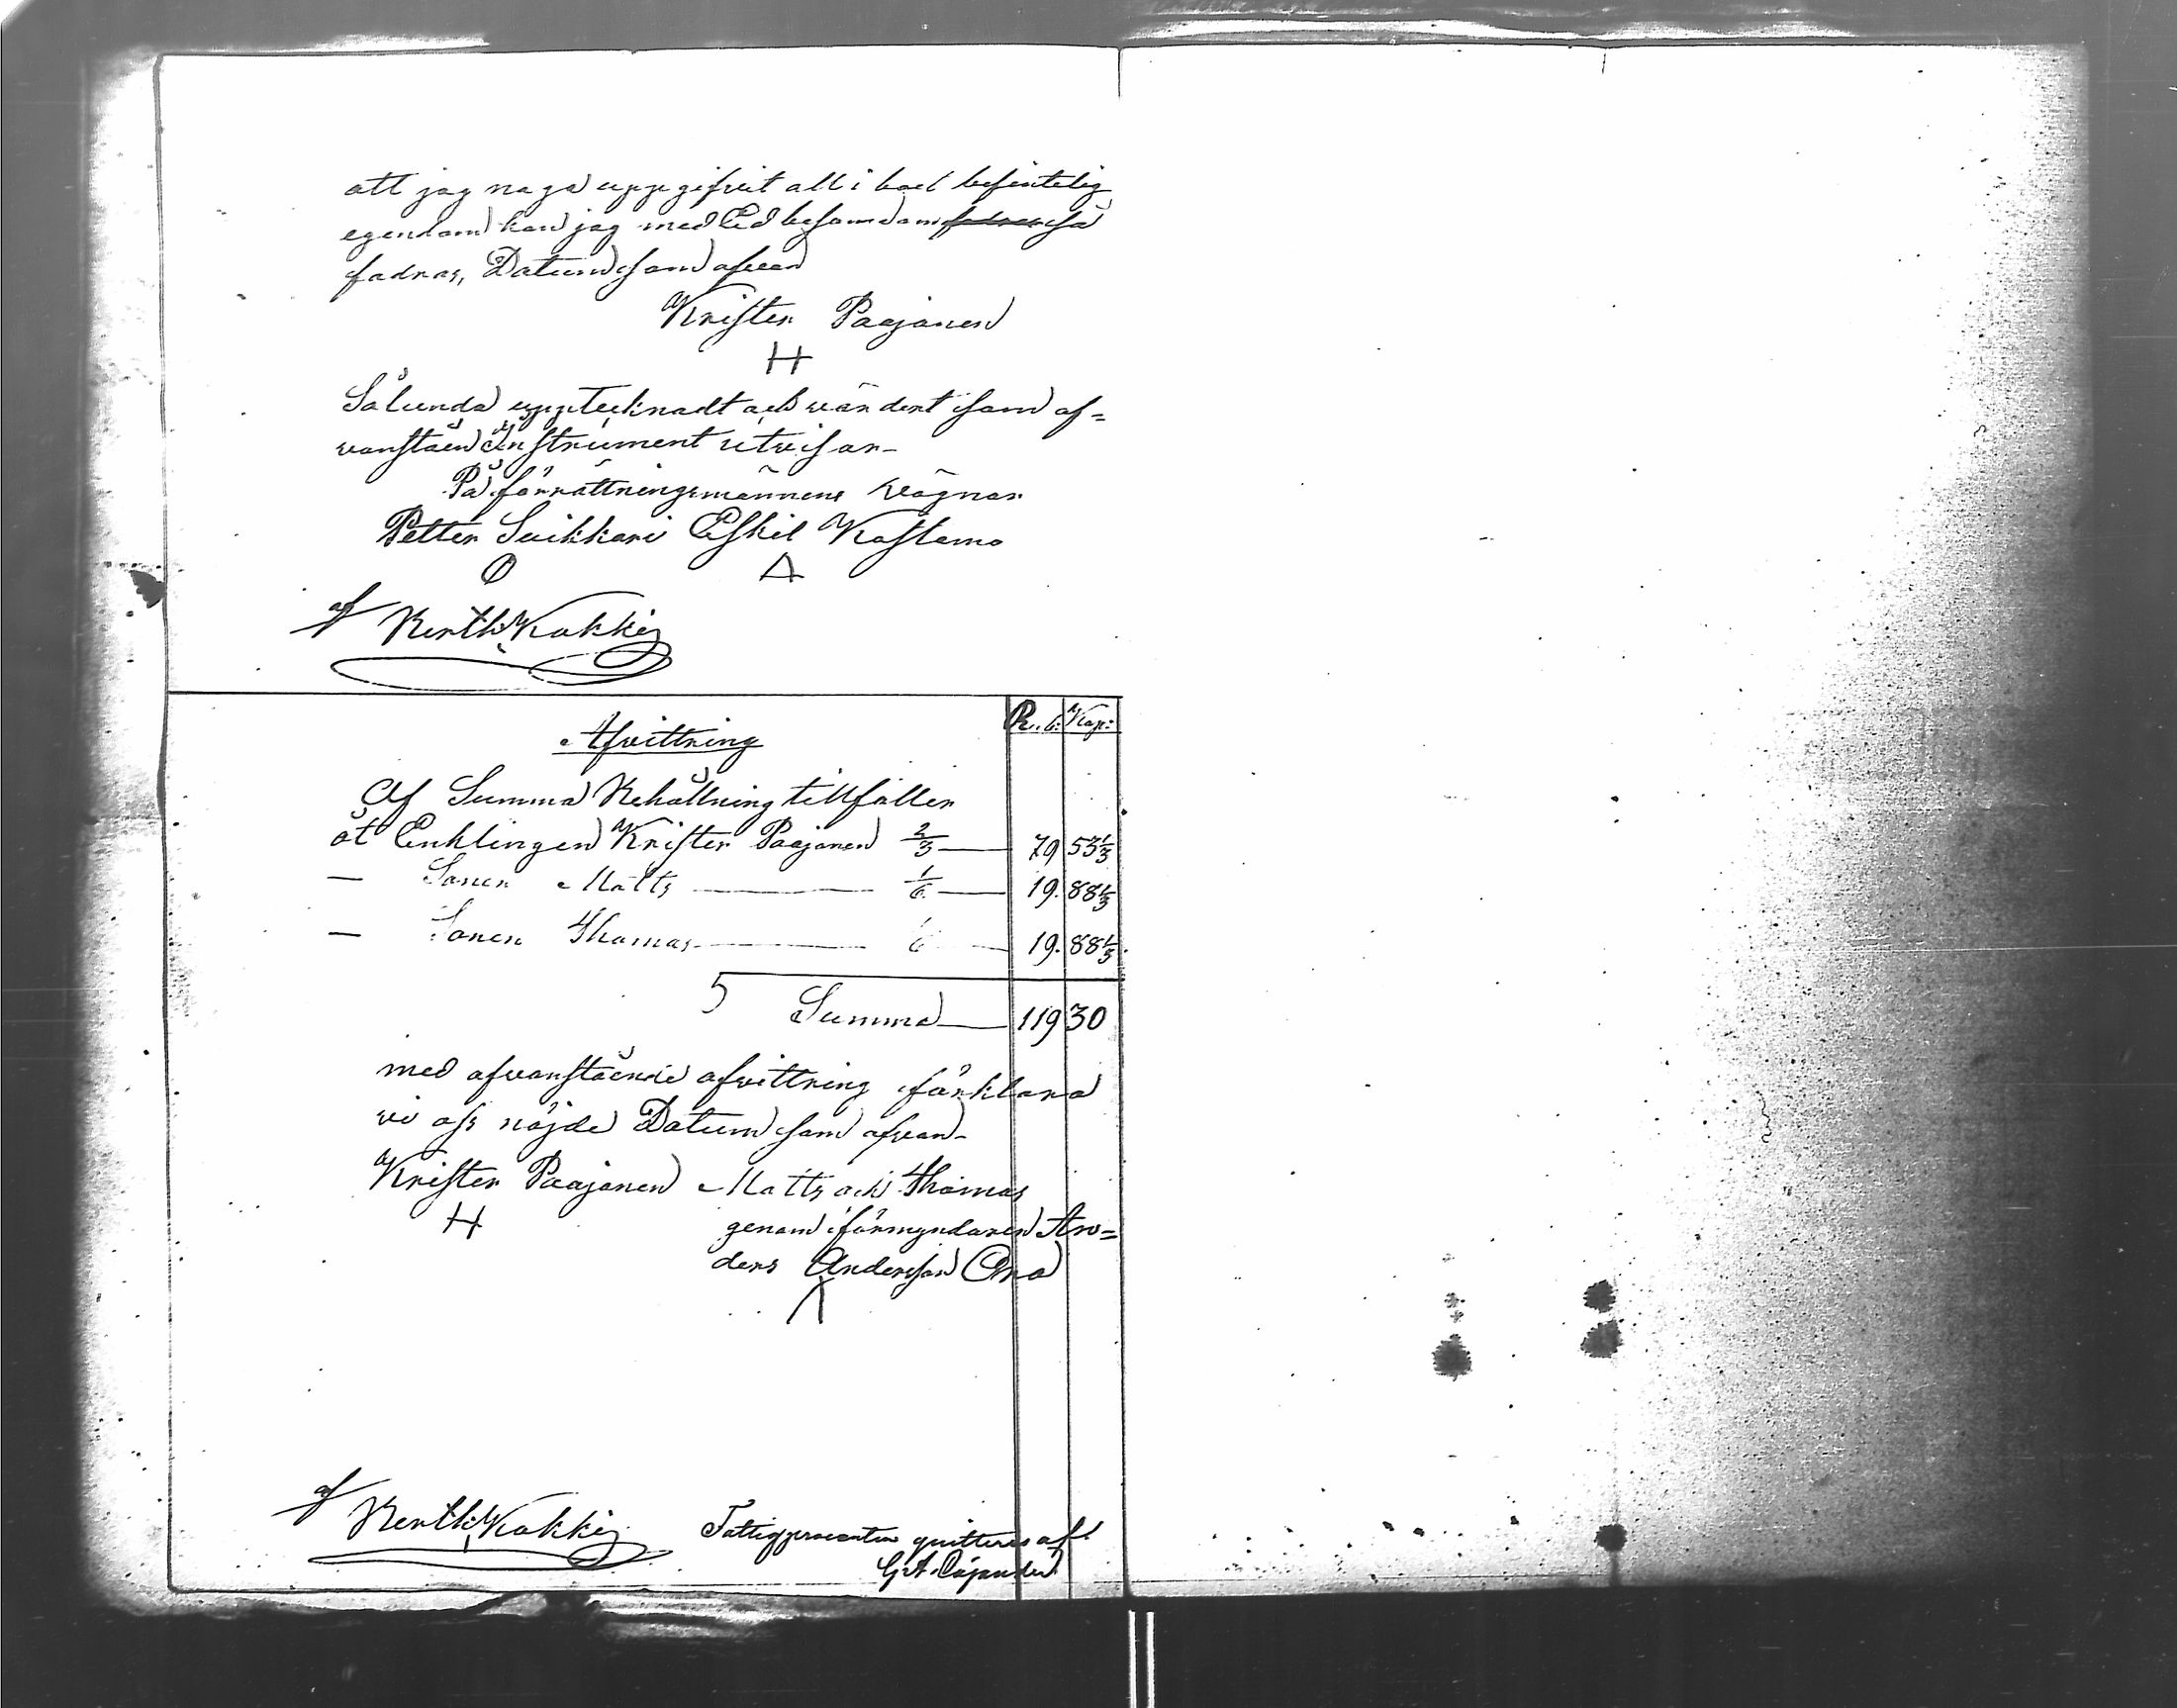 att jag noga uppgifvit all i boet befintelig
egendom kan jag med Ed besanna om så
fadras, Datum som ofvan
Krister Paajanen
H
Sålunda uppteknadt och värdert som of=
vanstående Instrument utvisar
På förrättningsmännens vägnar
Petter Suikkari Eskil Kostamo
af Berth: Kokki
Afvittring
R. b: Kop:
Af Summa Behållning tillfaller
åt Enklingen Krister Paajanen 2/3 79 53 1/3
— Sonen Matts 1/6 19. 88 1/3
— Sonen Thomas 1/6 19. 88 1/3
Summa 119 30
med ofvanstående afvittring förklara
vi oss nöjde Datum som ofvan
Krister Paajanen Matts och Thomas
H genom förmyndaren An=
ders Andersson Ora
af Berth: Kokki
Fattigprocenten quitteras af
G. A. Cajander